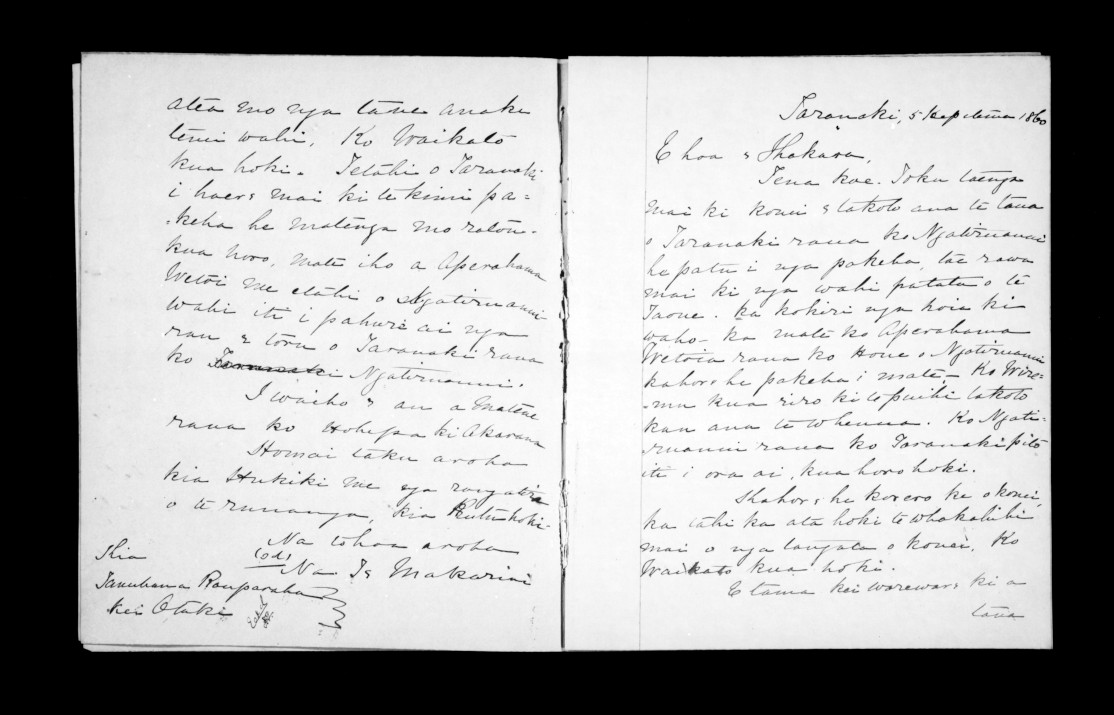 atea mo nga tane anake
tenei wahi, Ko Waikato
kua hoki. Tetahi o Taranaki
i haere mai ki te kimi pa=
=keha he matenga mo ratou.
kua horo, mate iho a Aperahama
Wetoi me etahi o Ngatiruanui
wahi iti i pahure ai nga
rau e toru o Taranaki raua
ko Ngatiruanui.
I waiho e au a Matene
raua ko Hohepa ki Akarana
Homai taku aroha
kia Hukiki me nga rangatira
o te runanga, kia hoki.
Na to hoa aroha
(Sd) Na Te Makarini
Kia
Tamihana Rauparaha
kei Otaki
Taranaki, 5 Hepetema 1860
E hoa e Ihakara,
Tena koe. Toku taenga
mai ki konei e takoto ana te taua
o Taranaki raua ko Ngatiruanui
he patu i nga pakeha, tae rawa
mai ki nga wahi patata o te
Taone. ka kokiri nga hoia ki
waho – ka mate ko Aperahama
Wetoia raua ko Hone o Ngatiruanui
kahore he pakeha i mate – Ko Wire=
=mu kua riro ki te puihi takoto
kau ana te whenua. Ko Ngati=
ruanui raua ko Taranaki pito
iti i ora ai, kua horo hoki.
Kahore he korero ke o konei,
ka tahi ka ata hoki te whakatihi
mai o nga tangata o konei. Ko
Waikato kua hoki.
E tama kei warewaře ki a
taua